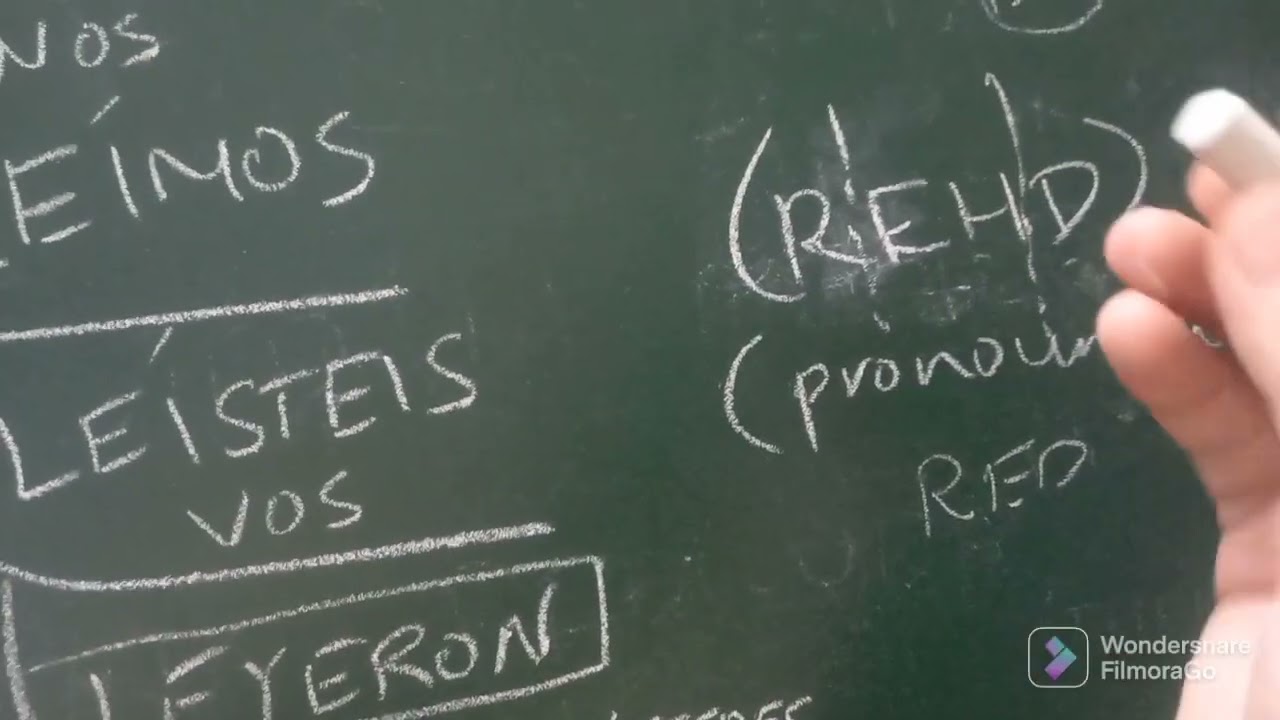 NOS
EÍMOS
LEÍSTEIS
VOS
LEYERON
(REHD)
(pronoun
RED
Wondersnare
FilmoraGo